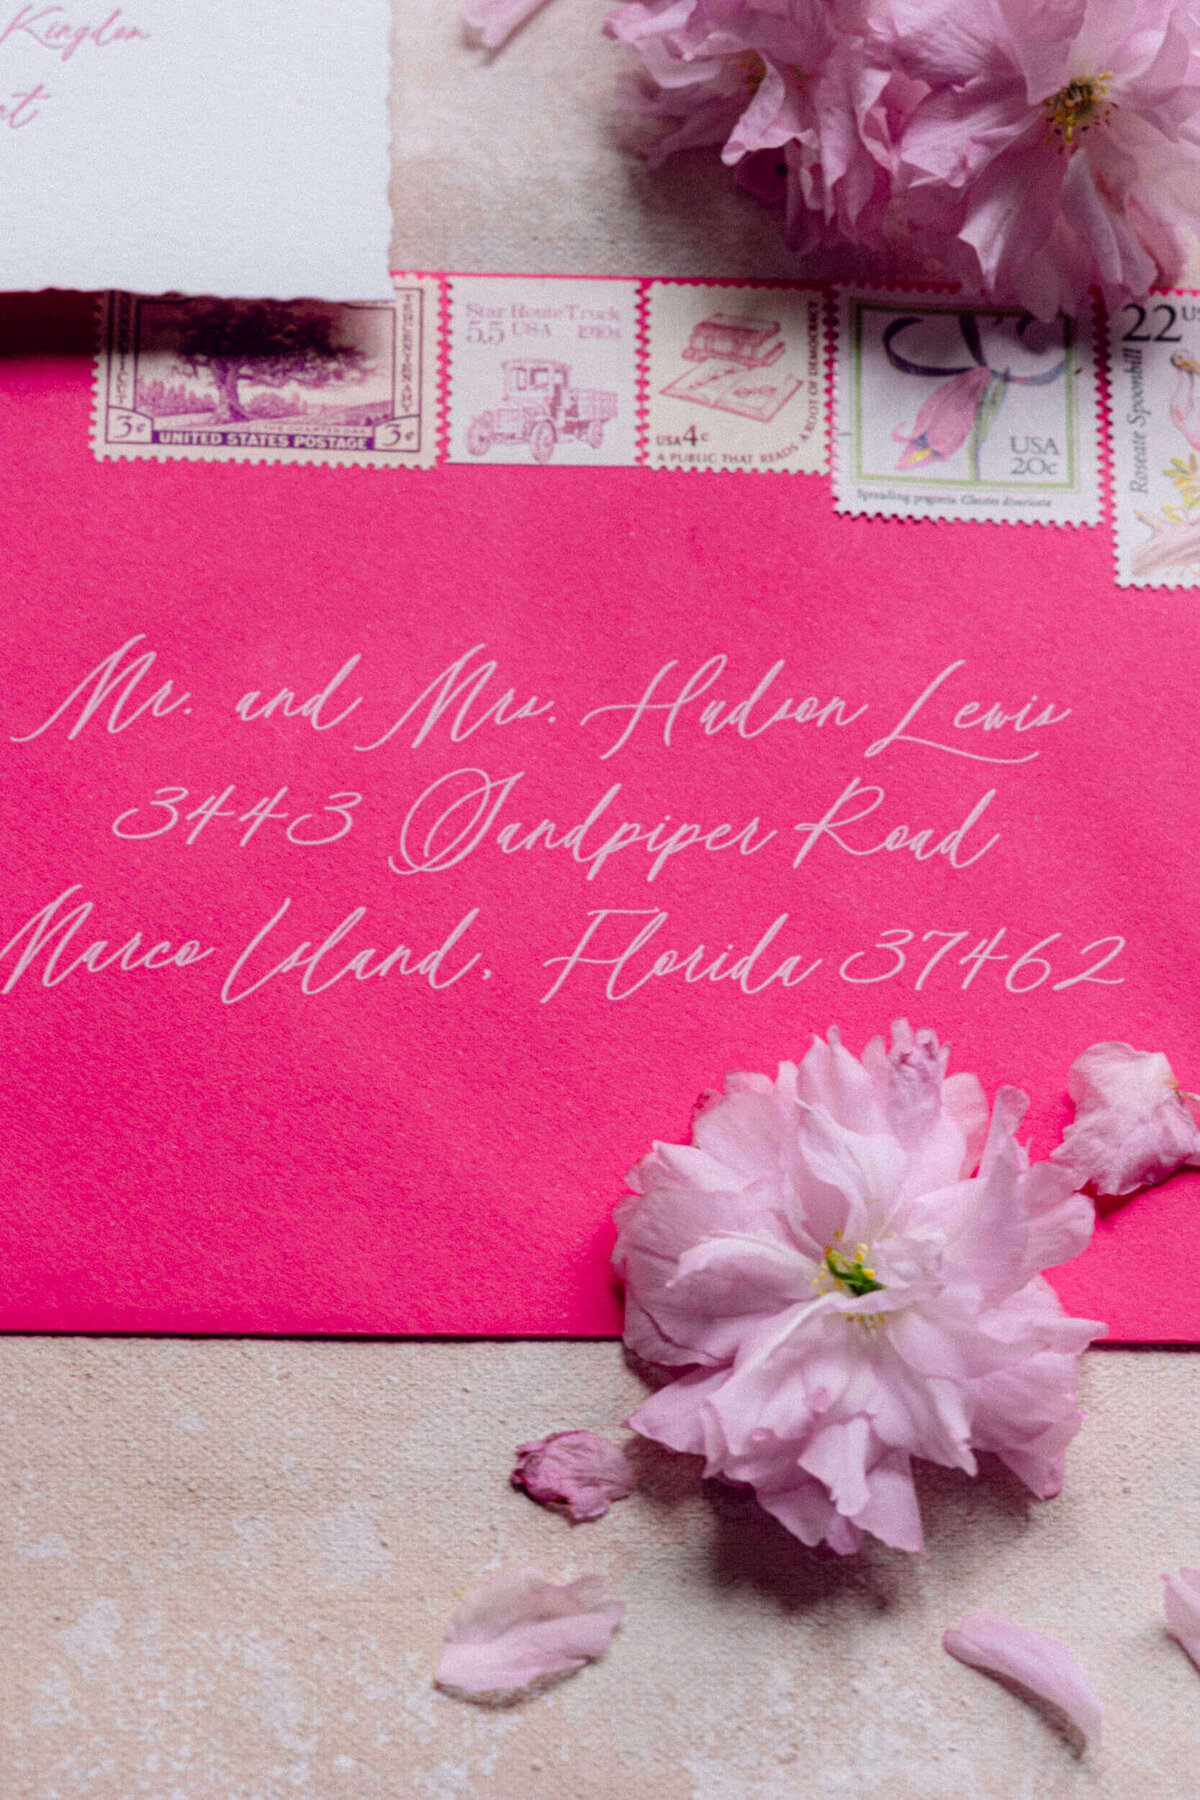 Kingdom
Star Route Truck
5.5 USA 1910s
THE CHARTER OAK
3¢ UNITED STATES POSTAGE 3¢
USA 4c
A PUBLIC THAT READS A ROOT OF DEMOCRACY
USA
20c
22 US
Roseate Spoonbill
Mr. and Mrs. Hudson Lewis
3443 Sandpiper Road
Marco Island, Florida 37462